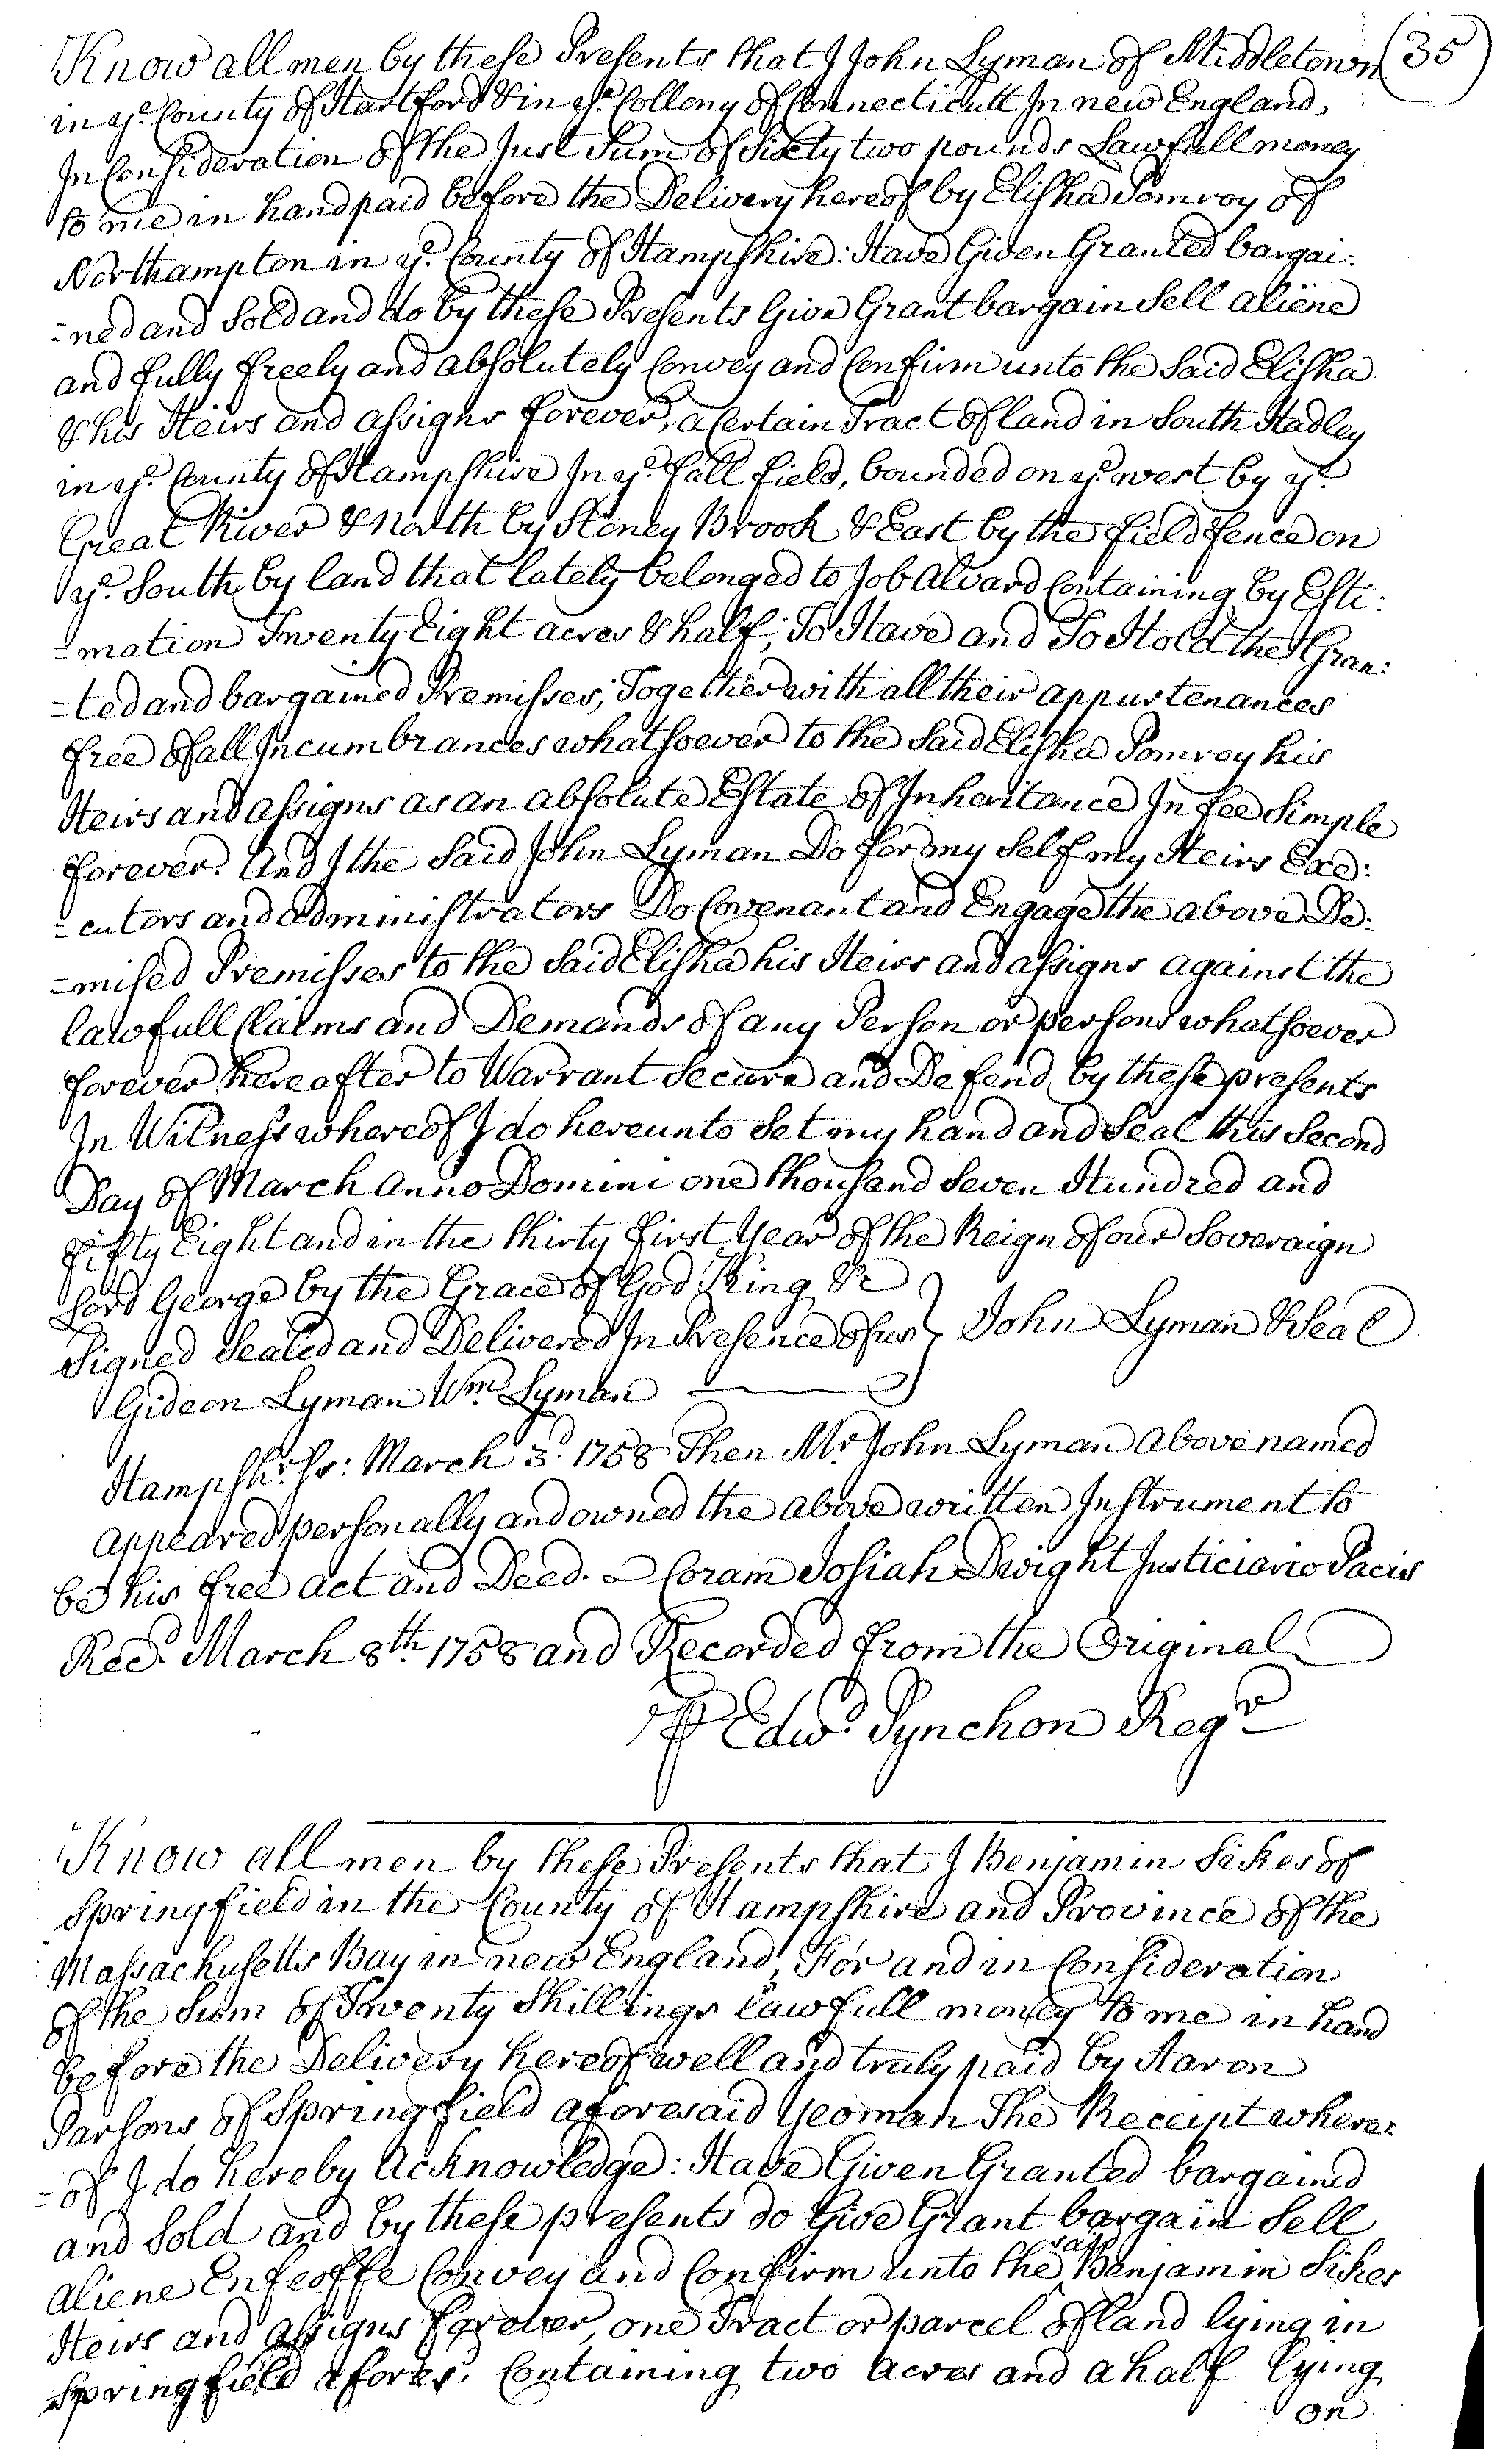 (35)
Know all men by these Presents that I John Lyman of Middletown
in ye. County of Hartford & in ye. Collony of Connecticutt In new England,
In Consideration of the Just Sum of Sixty two pounds Lawfull money
to me in hand paid before the Delivery hereof by Elisha Pomroy of
Northampton in ye. County of Hampshire: Have Given Granted bargai-
=ned and Sold and do by these Presents Give Grant bargain Sell aliene
and fully freely and absolutely Convey and Confirm unto the Said Elisha
& his Heirs and assigns forever, a Certain Tract of land in South Hadley
in ye. County of Hampshire In ye. fall field, bounded on ye. west by ye.
Great River & North by Stoney Brook & East by the field fence on
ye. South by land that lately belonged to Job Alvard Containing by Esti:
=mation Twenty Eight acres & half; To Have and To Hold the Gran:
=ted and bargained Premisses; Together with all their appurtenances
free of all Incumbrances whatsoever to the Said Elisha Pomroy his
Heirs and assigns as an absolute Estate of Inheritance In fee Simple
forever. And I the Said John Lyman Do for my Self my Heirs Exe:
=cutors and administrators Do Covenant and Engage the above De:
=mised Premisses to the Said Elisha his Heirs and assigns against the
lawfull Claims and Demands of any Person or persons whatsoever
forever hereafter to Warrant Secure and Defend by these presents
In Witness whereof I do hereunto Set my hand and Seal this Second
Day of March Anno Domini one thousand Seven Hundred and
fifty Eight and in the thirty first Year of the Reign of our Soveraign
Lord George by the Grace of God King &c
Signed Sealed and Delivered In Presence of us } John Lyman & Seal
Gideon Lyman Wm. Lyman
Hampshr. Ss: March 3d. 1758 Then Mr. John Lyman above named
appeared personally and owned the above written Instrument to
be his free act and Deed. Coram Josiah Dwight Justiciario Pacis
Recd. March 8th. 1758 and Recorded from the Original
P Edwd. Pynchon Regr
Know all men by these Presents that I Benjamin Sikes of
Springfield in the County of Hampshire and Province of the
Massachusetts Bay in new England, For and in Consideration
of the Sum of Twenty Shillings Lawfull money to me in hand
before the Delivery hereof well and truly paid by Aaron
Parsons of Springfield aforesaid Yeoman The Receipt where:
=of I do hereby Acknowledge: Have Given Granted bargained
and Sold and by these presents do Give Grant bargain Sell
aliene Enfeoffe Convey and Confirm unto the said Benjamin Sikes
Heirs and assigns forever, one Tract or parcel of land lying in
Springfield afores. Containing two Acres and a half lying
on